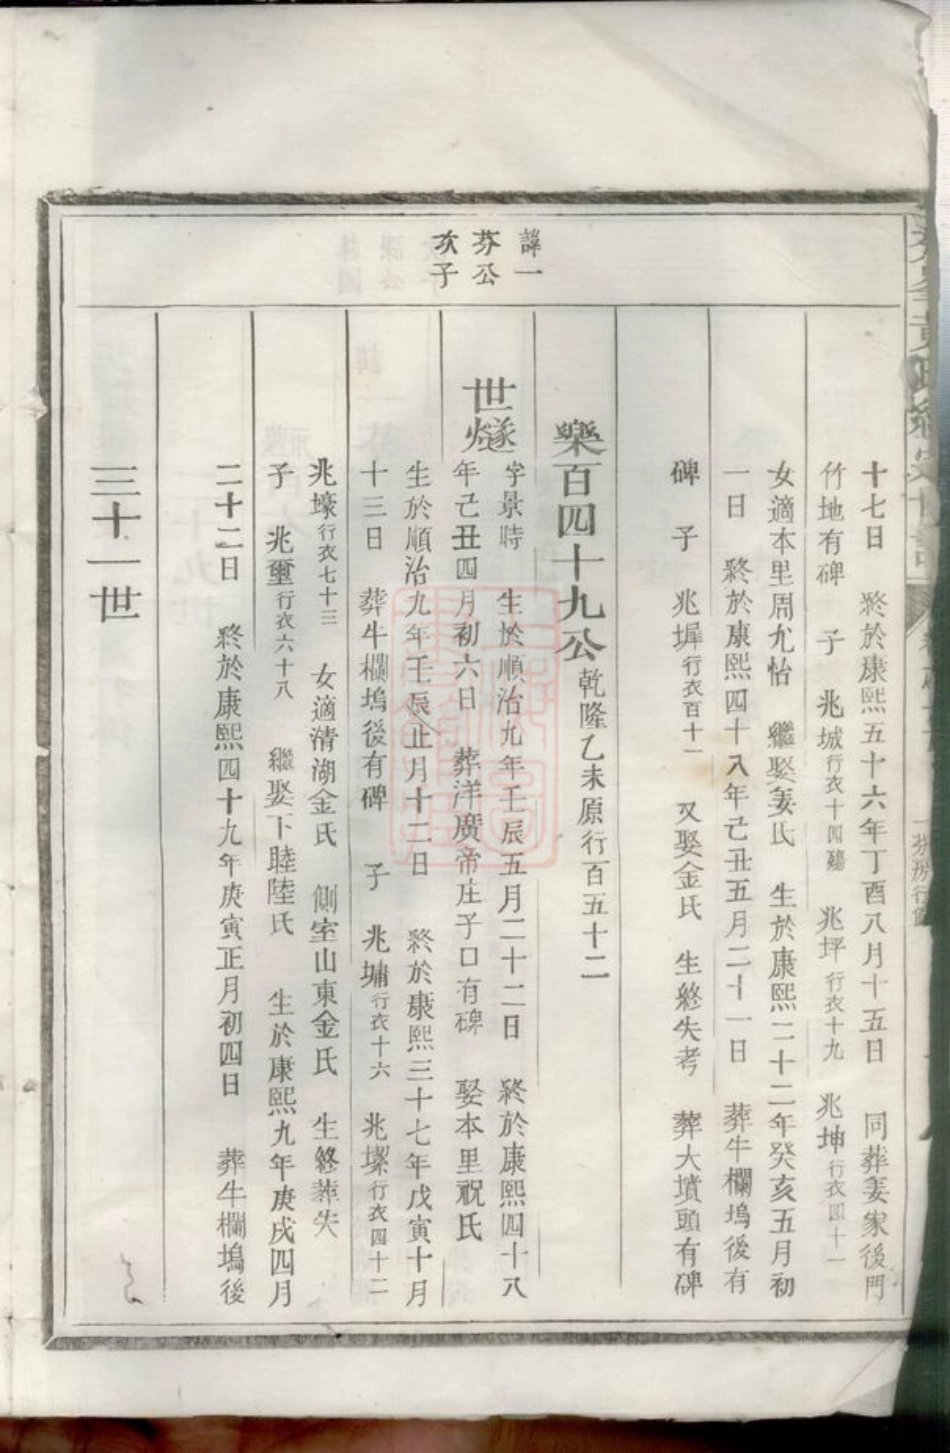 十七日　終於康熙五十六年丁酉八月十五日　同葬姜家後門
竹地有碑　子　兆城行衣十四殤　兆坪行衣十九　兆坤行衣四十一
女適本里周尤怡　繼娶姜氏　生於康熙二十二年癸亥五月初
一日　終於康熙四十八年己丑五月二十一日　葬牛欄塢後有
碑　子　兆墀行衣百十一　又娶金氏　生終失考　葬大墳頭有碑
樂百四十九公乾隆乙未原行百五十二
諱一
芬公
次子
世燧
字景時　生於順治九年壬辰五月二十二日　終於康熙四十八
年己丑四月初六日　葬洋廣帝庄子口有碑　娶本里祝氏
生於順治九年壬辰正月十二日　終於康熙三十七年戊寅十月
十三日　葬牛欄塢後有碑　子　兆墉行衣十六　兆塛行衣四十二
兆壕行衣七十三　女適清湖金氏　側室山東金氏　生終葬失
子　兆壐行衣六十八　繼娶下睦陸氏　生於康熙九年庚戌四月
二十二日　終於康熙四十九年庚寅正月初四日　葬牛欄塢後
三十一世